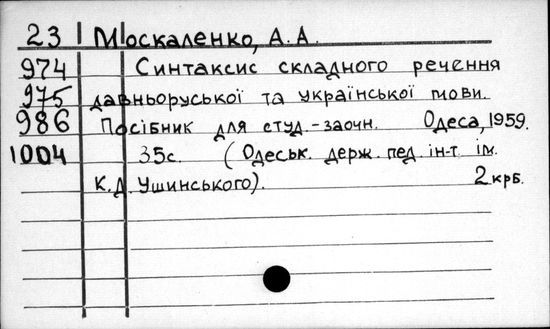 23 Москаленко, А.А.
974 Синтаксис складного речення
975 давньоруської та української мови.
986 Посібник для студ.-заочн. Одеса, 1959.
1004 35с. (Одеськ. держ. пед. ін-т ім.
К.Д. Ушинського). 2 крб.